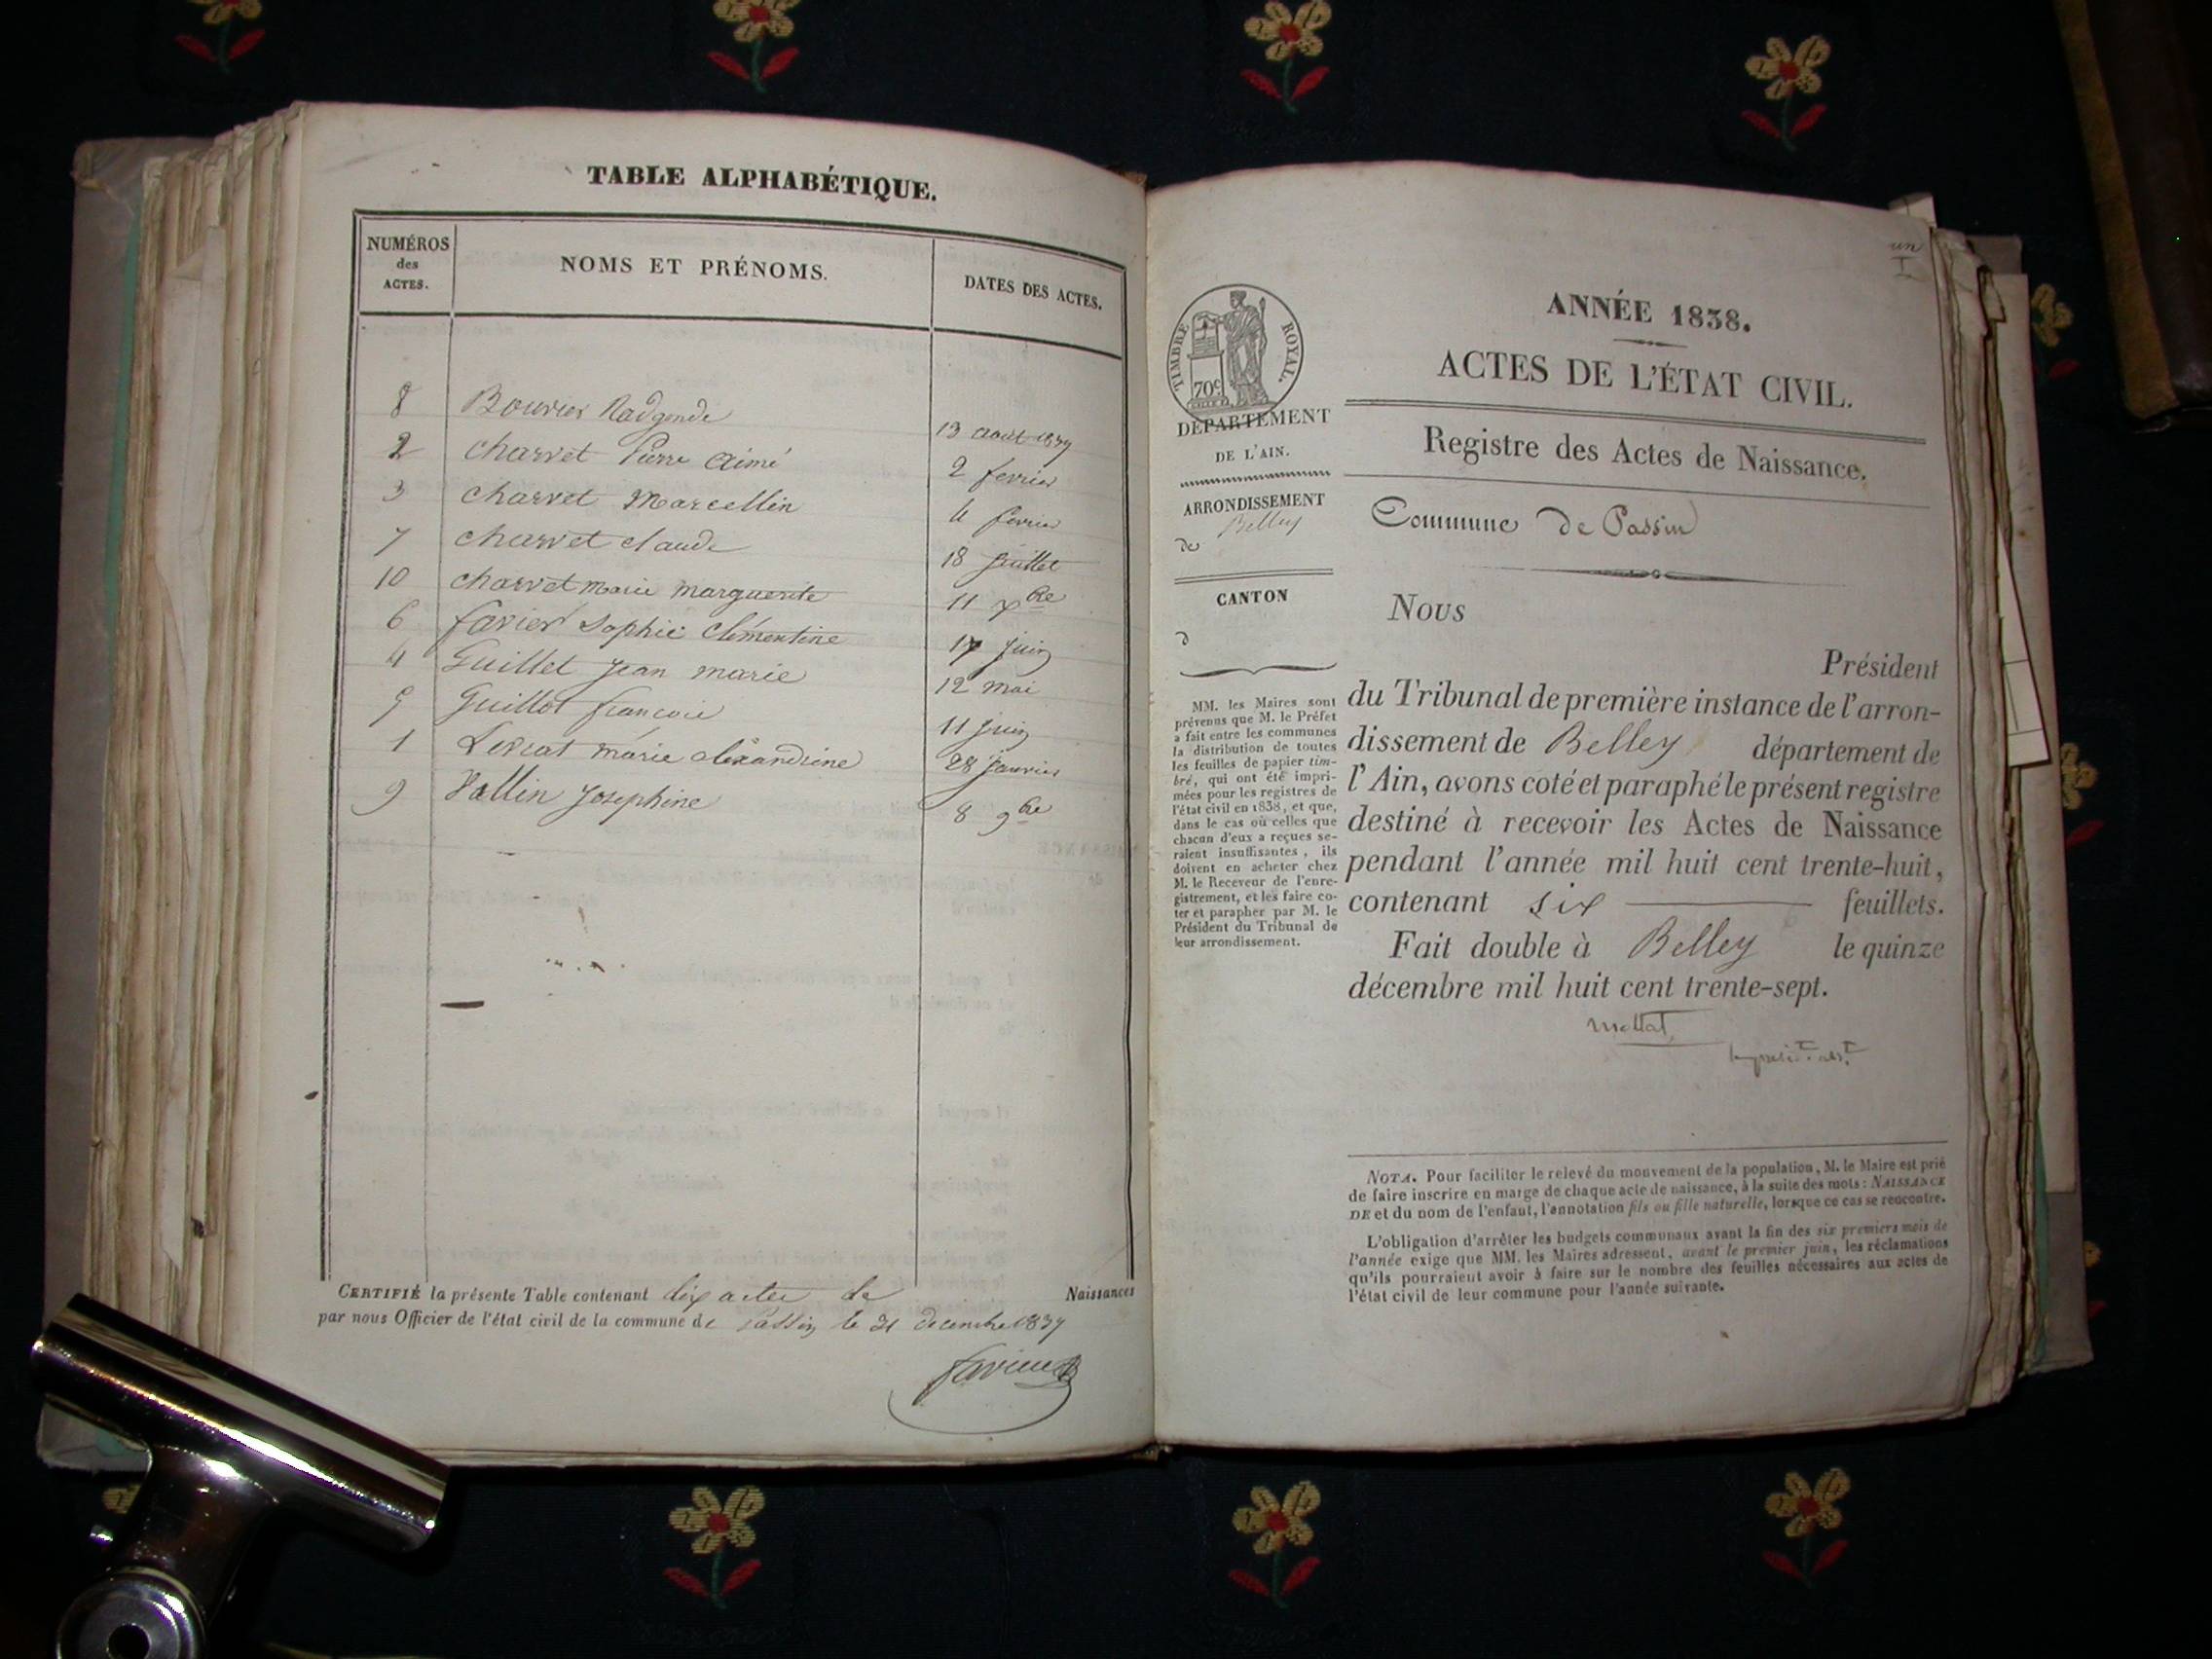 TABLE ALPHABÉTIQUE.
NUMÉROS des ACTES. NOMS ET PRÉNOMS. DATES DES ACTES.
8 Bouvier Radgonde 13 août 1837
2 Charvet Pierre Aimé 2 fevrier
3 Charvet Marcellin 4 fevrier
7 Charvet Claude 18 Juillet
10 Charvet Marie Marguerite 11 xbre
6 favier Sophie Clémentine 17 juin
4 Guillet Jean marie 12 mai
5 Guillot francois 11 juin
1 marie alexandrine 28 janvier
9 Vallin Josephine 8 9bre
CERTIFIÉ la présente Table contenant dix actes de Naissances
par nous Officier de l'état civil de la commune de Passin le 31 decembre 1837
favier
un
I
TIMBRE ROYAL.
70c
DÉPARTEMENT
DE L'AIN.
ARRONDISSEMENT
de Belley
CANTON
d
MM. les Maires sont
prévenus que M. le Préfet
a fait entre les communes
la distribution de toutes
les feuilles de papier tim-
bré, qui ont été impri-
mées pour les registres de
l'état civil en 1838, et que,
dans le cas où celles que
chacun d'eux a reçues se-
raient insuffisantes, ils
doivent en acheter chez
M. le Receveur de l'enre-
gistrement, et les faire co-
ter et parapher par M. le
Président du Tribunal de
leur arrondissement.
ANNÉE 1838.
ACTES DE L'ÉTAT CIVIL.
Registre des Actes de Naissance.
Commune de Passin
Nous
Président
du Tribunal de première instance de l'arron-
dissement de Belley département de
l'Ain, avons coté et paraphé le présent registre
destiné à recevoir les Actes de Naissance
pendant l'année mil huit cent trente-huit,
contenant six feuillets.
Fait double à Belley le quinze
décembre mil huit cent trente-sept.
NOTA. Pour faciliter le relevé du mouvement de la population, M. le Maire est prié
de faire inscrire en marge de chaque acte de naissance, à la suite des mots : NAISSANCE
DE et du nom de l'enfant, l'annotation fils ou fille naturelle, lorsque ce cas se rencontre.
L'obligation d'arrêter les budgets communaux avant la fin des six premiers mois de
l'année exige que MM. les Maires adressent, avant le premier juin, les réclamations
qu'ils pourraient avoir à faire sur le nombre des feuilles nécessaires aux actes de
l'état civil de leur commune pour l'année suivante.